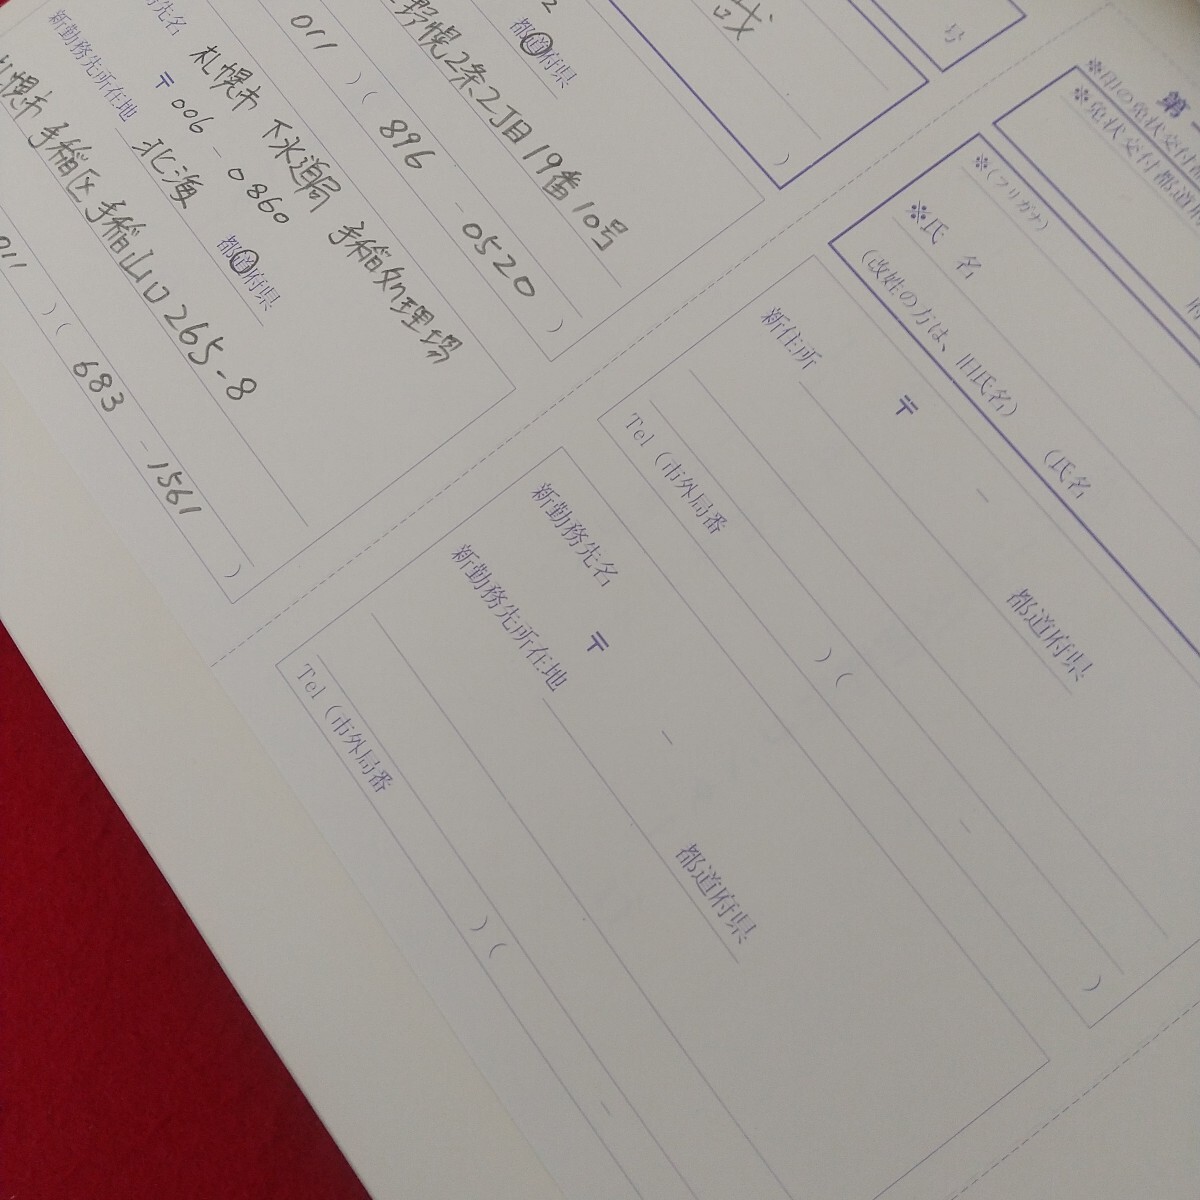 哉
号
都道府県
野幌2条2丁目19番10号
011 ) ( 896 - 0520 )
務先名 札幌市 下水道局 手稲処理場
新勤務先所在地 〒006-0860
北海 都道府県
札幌市手稲区手稲山口265-8
011 ) ( 683 - 1561 )
第
※印の免状交付
※免状交付都道府
※(フリガナ)
※氏 名
(改姓の方は、旧氏名) (氏名
新住所 〒 -
都道府県
Tel (市外局番 ) ( - )
新勤務先名
新勤務先所在地 〒 -
都道府県
Tel (市外局番 ) ( -